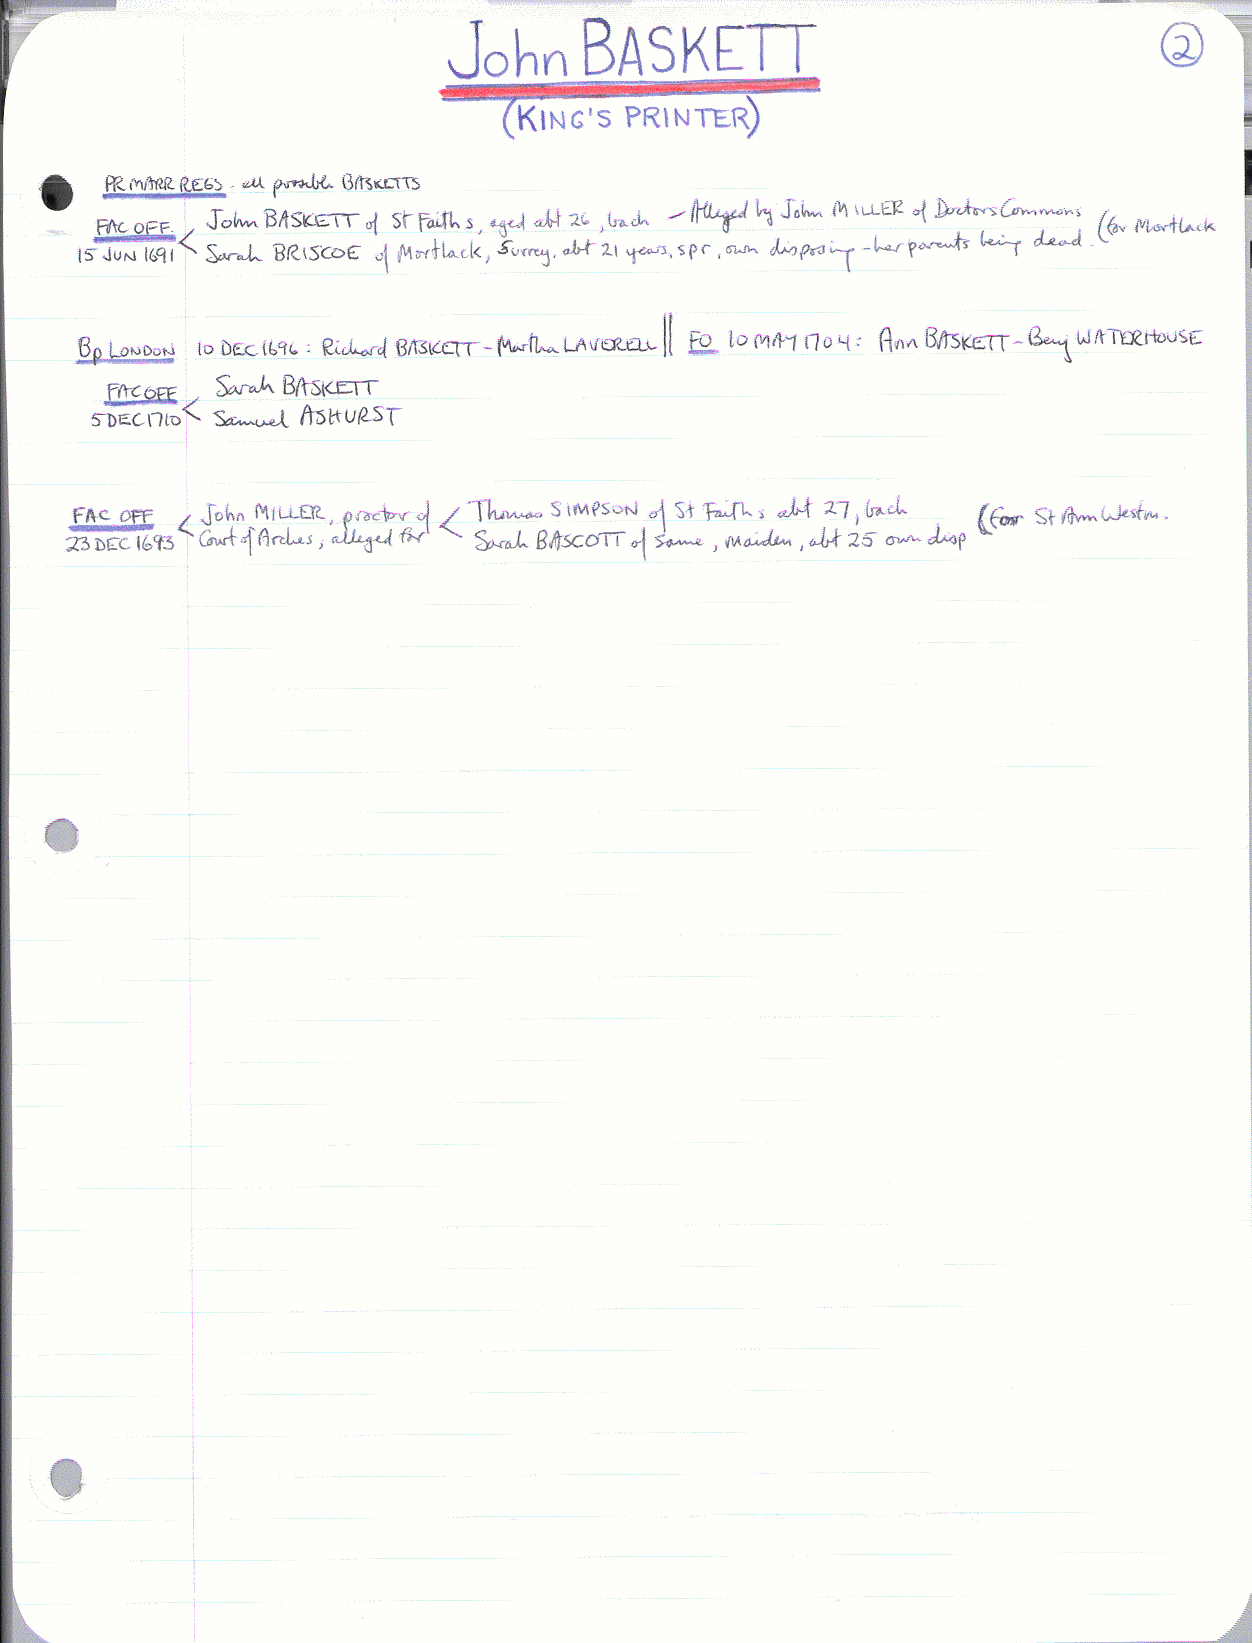 John BASKETT
②
(KING'S PRINTER)
PR MARR REGS - all possible BASKETTS
FAC OFF. < John BASKETT of St Faiths, aged abt 26, bach - Alleged by John MILLER of Doctors Commons (for Mortlack
15 JUN 1691 < Sarah BRISCOE of Mortlack, Surrey, abt 21 years, spr, own disposing - her parents being dead.
Bp LONDON 10 DEC 1696: Richard BASKETT - Martha LAVERELL || FO 10 MAY 1704: Ann BASKETT - Benj WATERHOUSE
FAC OFF < Sarah BASKETT
5 DEC 1710 < Samuel ASHURST
FAC OFF < John MILLER, proctor of < Thomas SIMPSON of St Faiths abt 27, bach (for St Ann Westm.
23 DEC 1693 Court of Arches, alleged for Sarah BASCOTT of same, maiden, abt 25 own disp